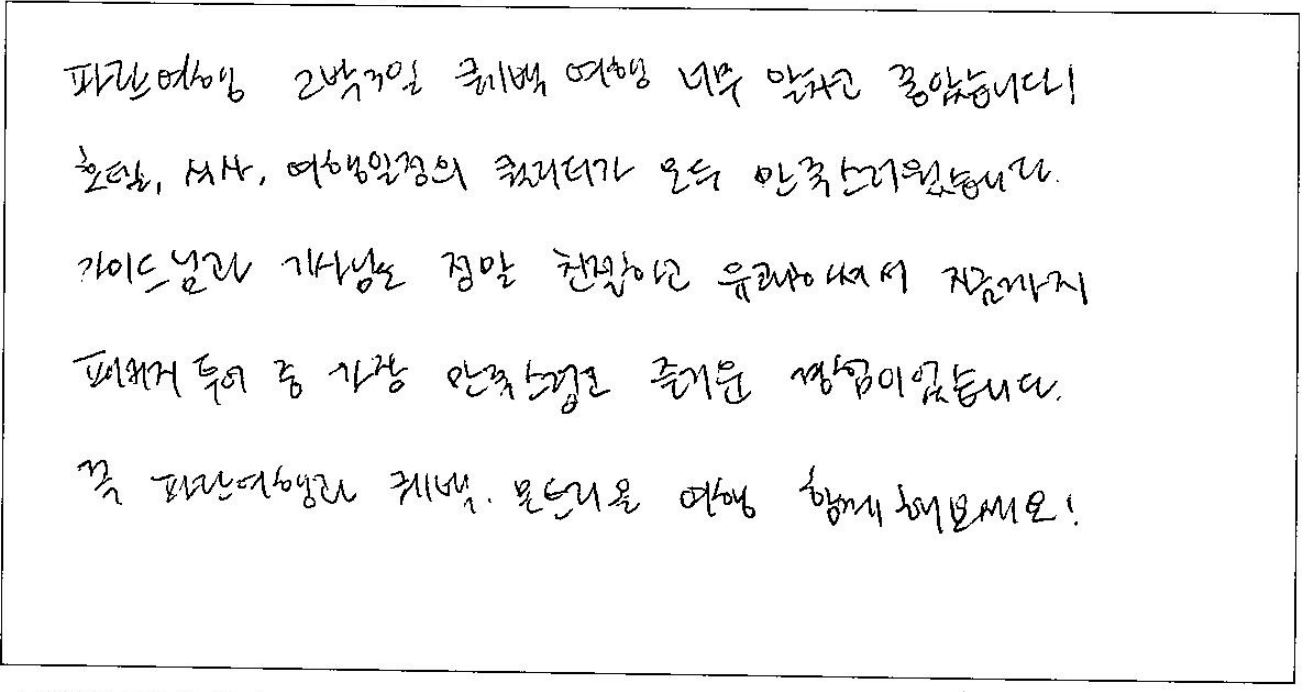 파란여행 2박3일 퀘백 여행 너무 알차고 좋았습니다!
호텔, 식사, 여행일정의 퀄리티가 모두 만족스러웠습니다.
가이드님과 기사님도 정말 친절하고 유쾌하셔서 지금까지
패키지 투어 중 가장 만족스럽고 즐거운 경험이었습니다.
꼭 파란여행과 퀘백, 몬트리올 여행 함께 해보세요!